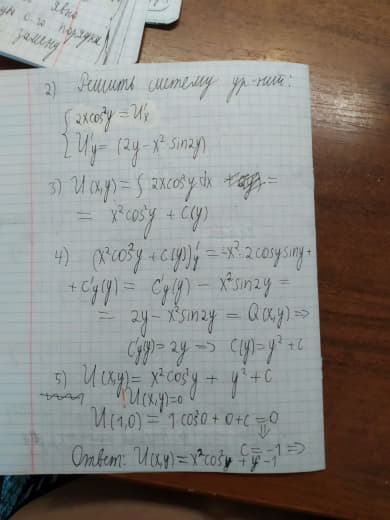 явно
ую о-го порядка
замену
2) Решить систему ур-ний:
{ 2xcos²y = U'x
U'y = (2y - x² sin2y)
3) U(x,y) = ∫ 2xcos²y dx =
= x²cos²y + C(y)
4) (x²cos²y + C(y))'y = -x²·2cosysiny +
+ C'y(y) = C'y(y) - x²sin2y =
= 2y - x²sin2y = Q(x,y) ⇒
C'y(y) = 2y ⇒ C(y) = y² + c
5) U(x,y) = x²cos²y + y² + C
U(x,y)=0
U(1,0) = 1cos²0 + 0 + c = 0
⇓
c = -1 ⇒
Ответ: U(x,y) = x²cos²y + y² - 1